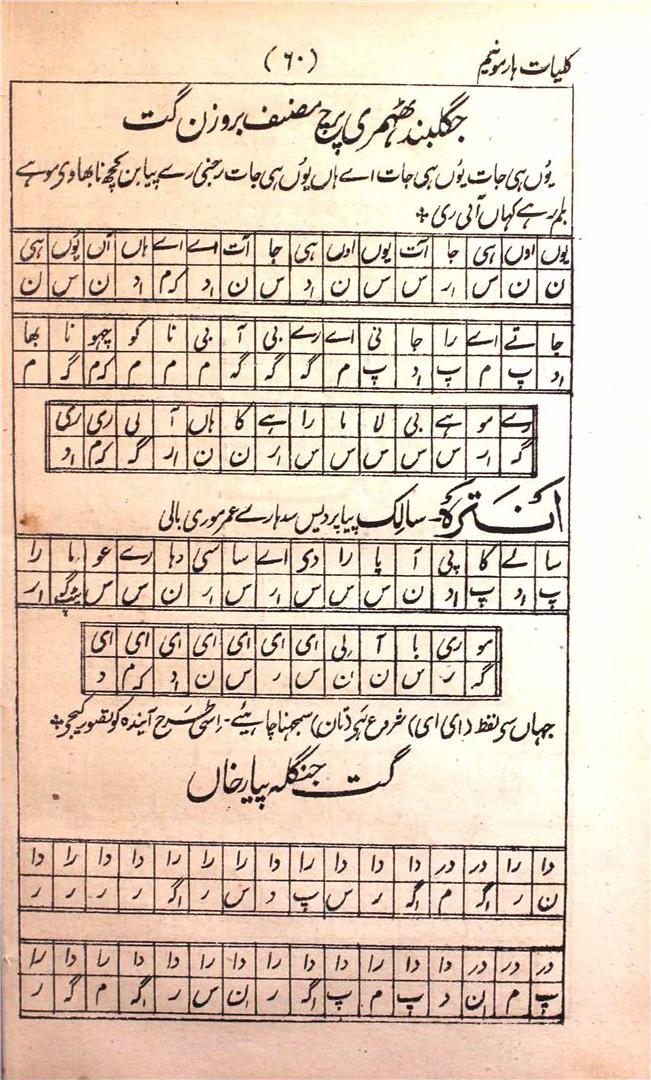 کلیات ہارمونیم
(۶۰)
جگلبند ٹھمری پرچ مصنف بروزن گت
یوُں ہی جات یوُں ہی جات اے ہاں یوُں ہی جات رجنی رے پیا بن کچھ نا بھاوی موہے
بلم رہے کہاں آلی ری
یوں اوں ہی جا آت یوں اوں ہی جا آت اے اے ہاں آں یوُں ہی
ن ن س ار س س س ن اد س ن اد کرم اد ن س ن
جا تے اے را جا نی اے رے بی آ بی نا کو چہو نا بھا
اد پ م پ اد پ م گ گ گ م م م کرم گ م
رے مو ہے بی لا ما را ہے کا ہاں آ لی ری ری
گ ار س س س س س ار ن ن ار گ کرم اد
انترہ - سالِک پیا پردیس سدہارے عمر موری بالی
سا لے کا پی آ پا را دی اے سا سی دہا رے عو ما را
پ اد پ اد ن س س س ار س ار ن س س ار
مو ری با آ لی ای ای ای ای ای ای ای
گ ر س ن ن س ر س ن اد کرم د
جہاں سی لفظ (ای ای) شروع ہی (تان) سمجھنا چاہیئے - اِسی طرح آیندہ کو تصور کیجو
گت جنگلہ پیار خاں
دا را در در دا دا دا را دا را را را دا دا را دا
ن ر اگ م اگ ر س پ د س ر اگ ر ر ر ر
در در در دا دا دا را دا را دا را دا دا را دا را
پ م ان د پ م پ اگ ر ان س ر اگ م گ ر